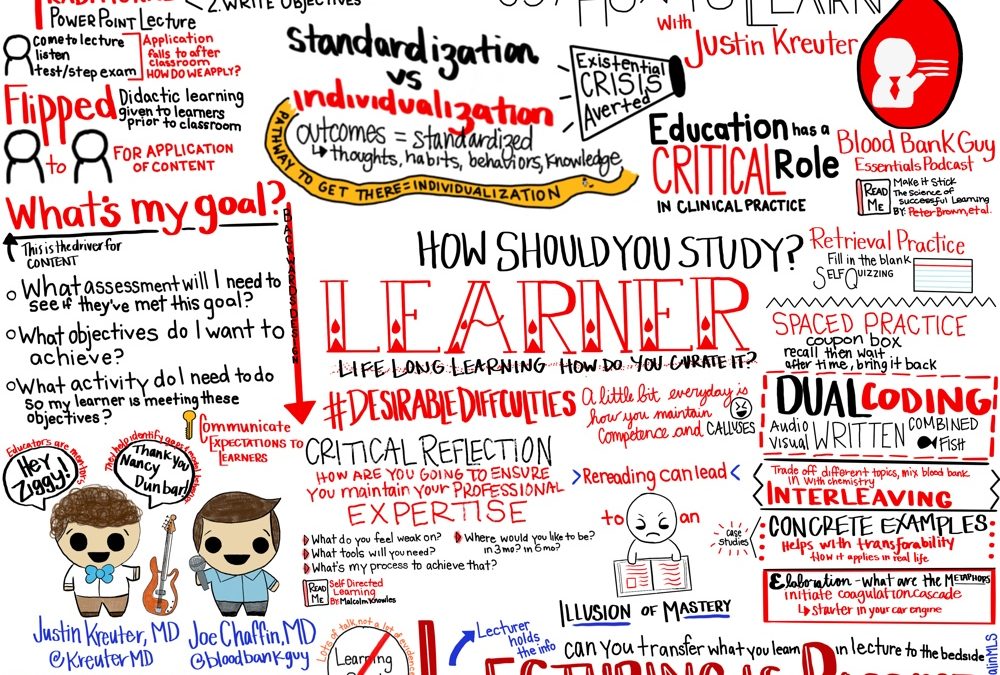 POWERPOINT LECTURE
2. WRITE OBJECTIVES
COME to lecture
listen
test/step exam
Application
falls to after
classroom
HOW DO WE APPLY?
Flipped
Didactic learning
given to learners
prior to classroom
to
FOR APPLICATION
OF CONTENT
Standardization
vs
individualization
outcomes = standardized
thoughts, habits, behaviors, knowledge
PATHWAY TO GET THERE = INDIVIDUALIZATION
Existential
CRISIS
Averted
With
Justin Kreuter
Education has a
CRITICAL Role
IN CLINICAL PRACTICE
Blood Bank Guy
Essentials Podcast
READ
ME
Make it Stick
The Science of
successful Learning
BY: Peter Brown, et al.
What's my goal?
This is the driver for
CONTENT
What assessment will I need to
see if they've met this goal?
What objectives do I want to
achieve?
What activity do I need to do
so my learner is meeting these
objectives?
BACKWARDS DESIGN
Communicate
EXPECTATIONS TO
LEARNERS
HOW SHOULD YOU STUDY?
LEARNER
LIFE LONG LEARNING HOW DO YOU CURATE IT?
#DESIRABLE DIFFCULTIES
A little bit everyday is
how you maintain
competence and CALLYSES
CRITICAL REFLECTION
HOW ARE YOU GOING TO ENSURE
YOU maintain your PROFESSIONAL
EXPERTISE
What do you feel weak on?
What tools will you need?
What's my process to achieve that?
Where would you like to be?
in 3 mo? in 6 mo?
READ
ME
Self Directed
Learning
BY: Malcolm Knowles
Rereading can lead
to
an
ILLUSION OF MASTERY
Retrieval Practice
Fill in the blank
SELF QUIZZING
SPACED PRACTICE
coupon box
recall then wait
after time, bring it back
DUAL CODING
Audio
Visual
WRITTEN
COMBINED
FISH
Trade off different topics, mix blood bank
in with chemistry
INTERLEAVING
case
studies
CONCRETE EXAMPLES
Helps with transforability
How it applies in real life
Elaboration - what are the METAPHORS
initiate coagulation cascade
starter in your car engine
Educators are mentors
HEY
Ziggy!
Thank you
Nancy
Dunbar!
Justin Kreuter, MD
@KreuterMD
Joe Chaffin, MD
@bloodbankguy
Lots of talk, not a lot of evidence
Lecturer
holds
the info
can you transfer what you learn in lecture to the bedside